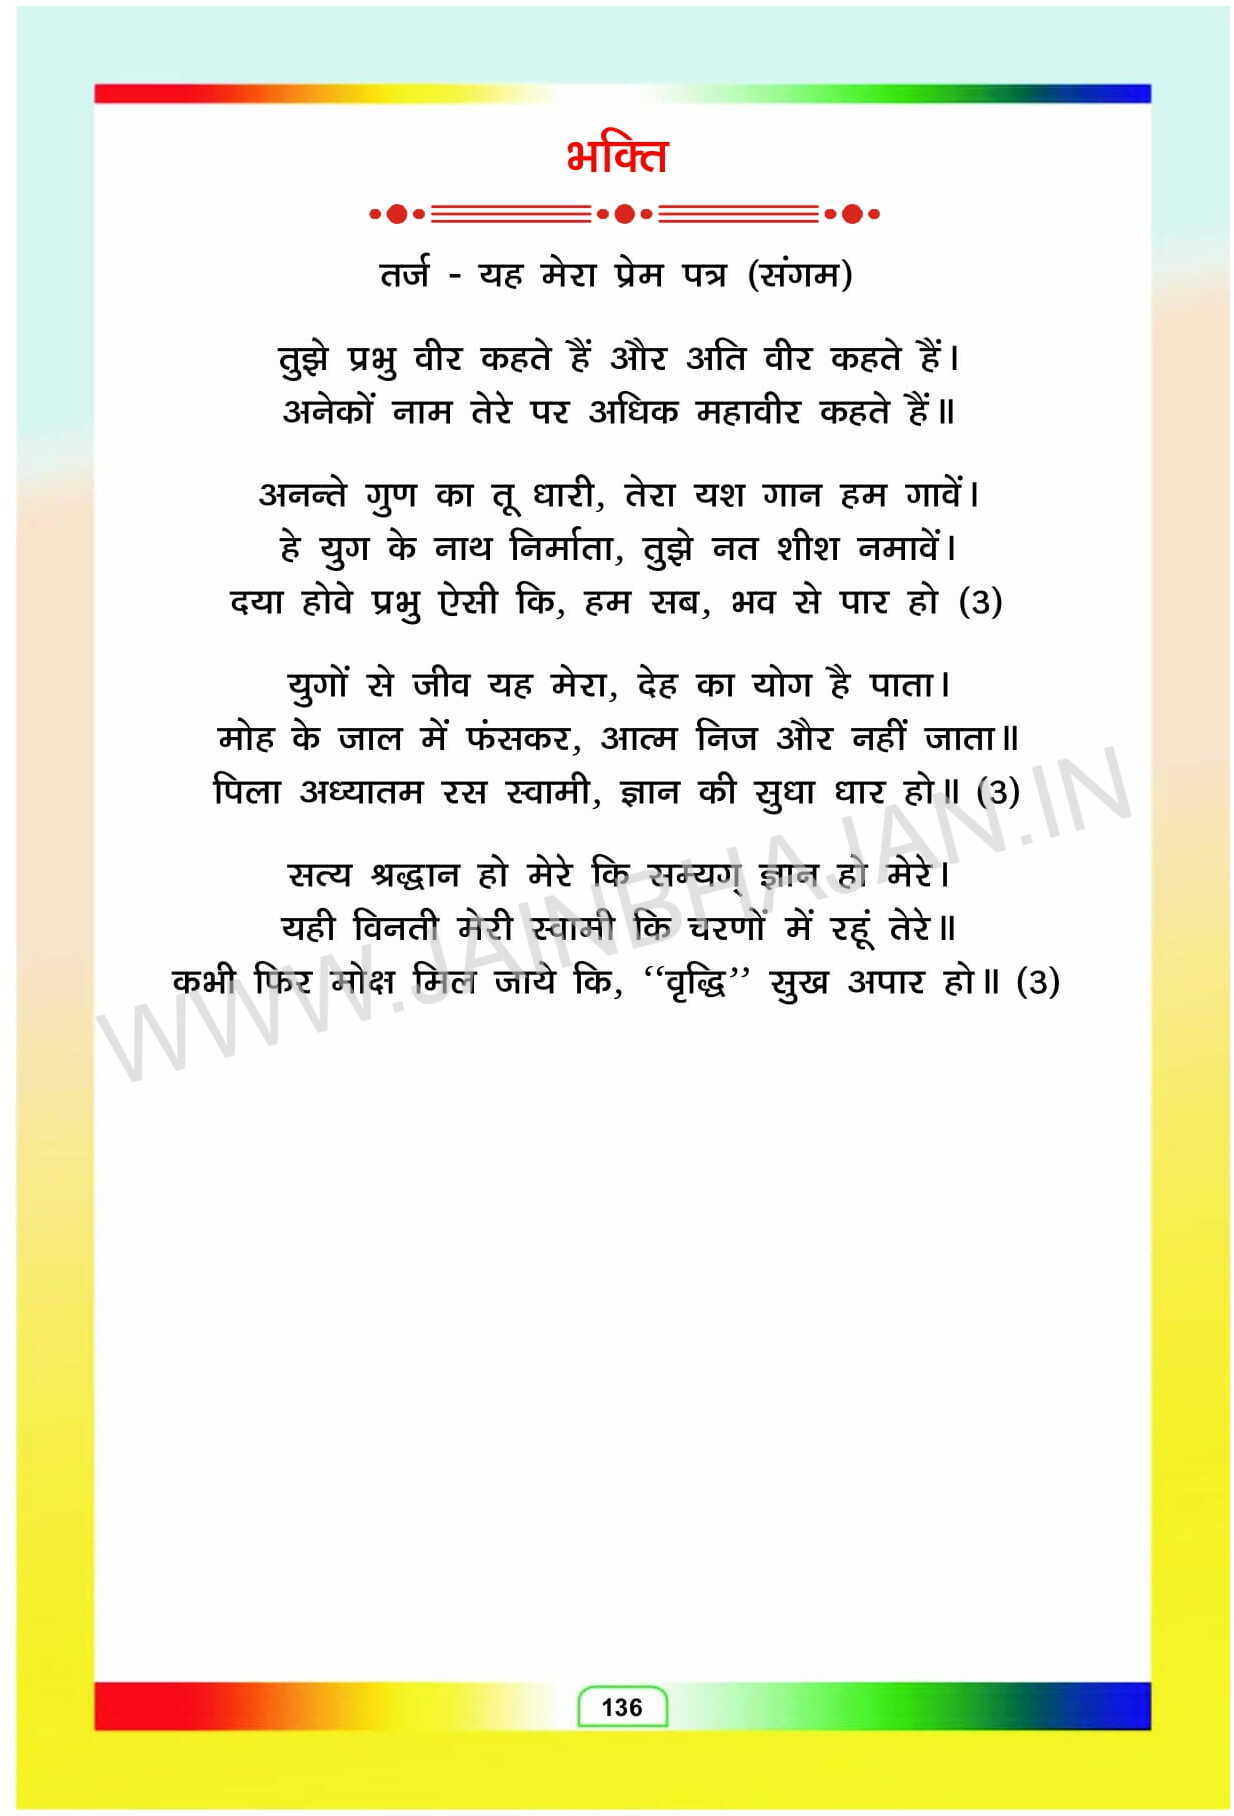 भक्ति
तर्ज - यह मेरा प्रेम पत्र (संगम)
तुझे प्रभु वीर कहते हैं और अति वीर कहते हैं।
अनेकों नाम तेरे पर अधिक महावीर कहते हैं॥
अनन्ते गुण का तू धारी, तेरा यश गान हम गावें।
हे युग के नाथ निर्माता, तुझे नत शीश नमावें।
दया होवे प्रभु ऐसी कि, हम सब, भव से पार हो (3)
युगों से जीव यह मेरा, देह का योग है पाता।
मोह के जाल में फंसकर, आत्म निज और नहीं जाता॥
पिला अध्यातम रस स्वामी, ज्ञान की सुधा धार हो॥ (3)
सत्य श्रद्धान हो मेरे कि सम्यग् ज्ञान हो मेरे।
यही विनती मेरी स्वामी कि चरणों में रहूं तेरे॥
कभी फिर मोक्ष मिल जाये कि, ‘‘वृद्धि’’ सुख अपार हो॥ (3)
WWW.JAINBHAJAN.IN
136